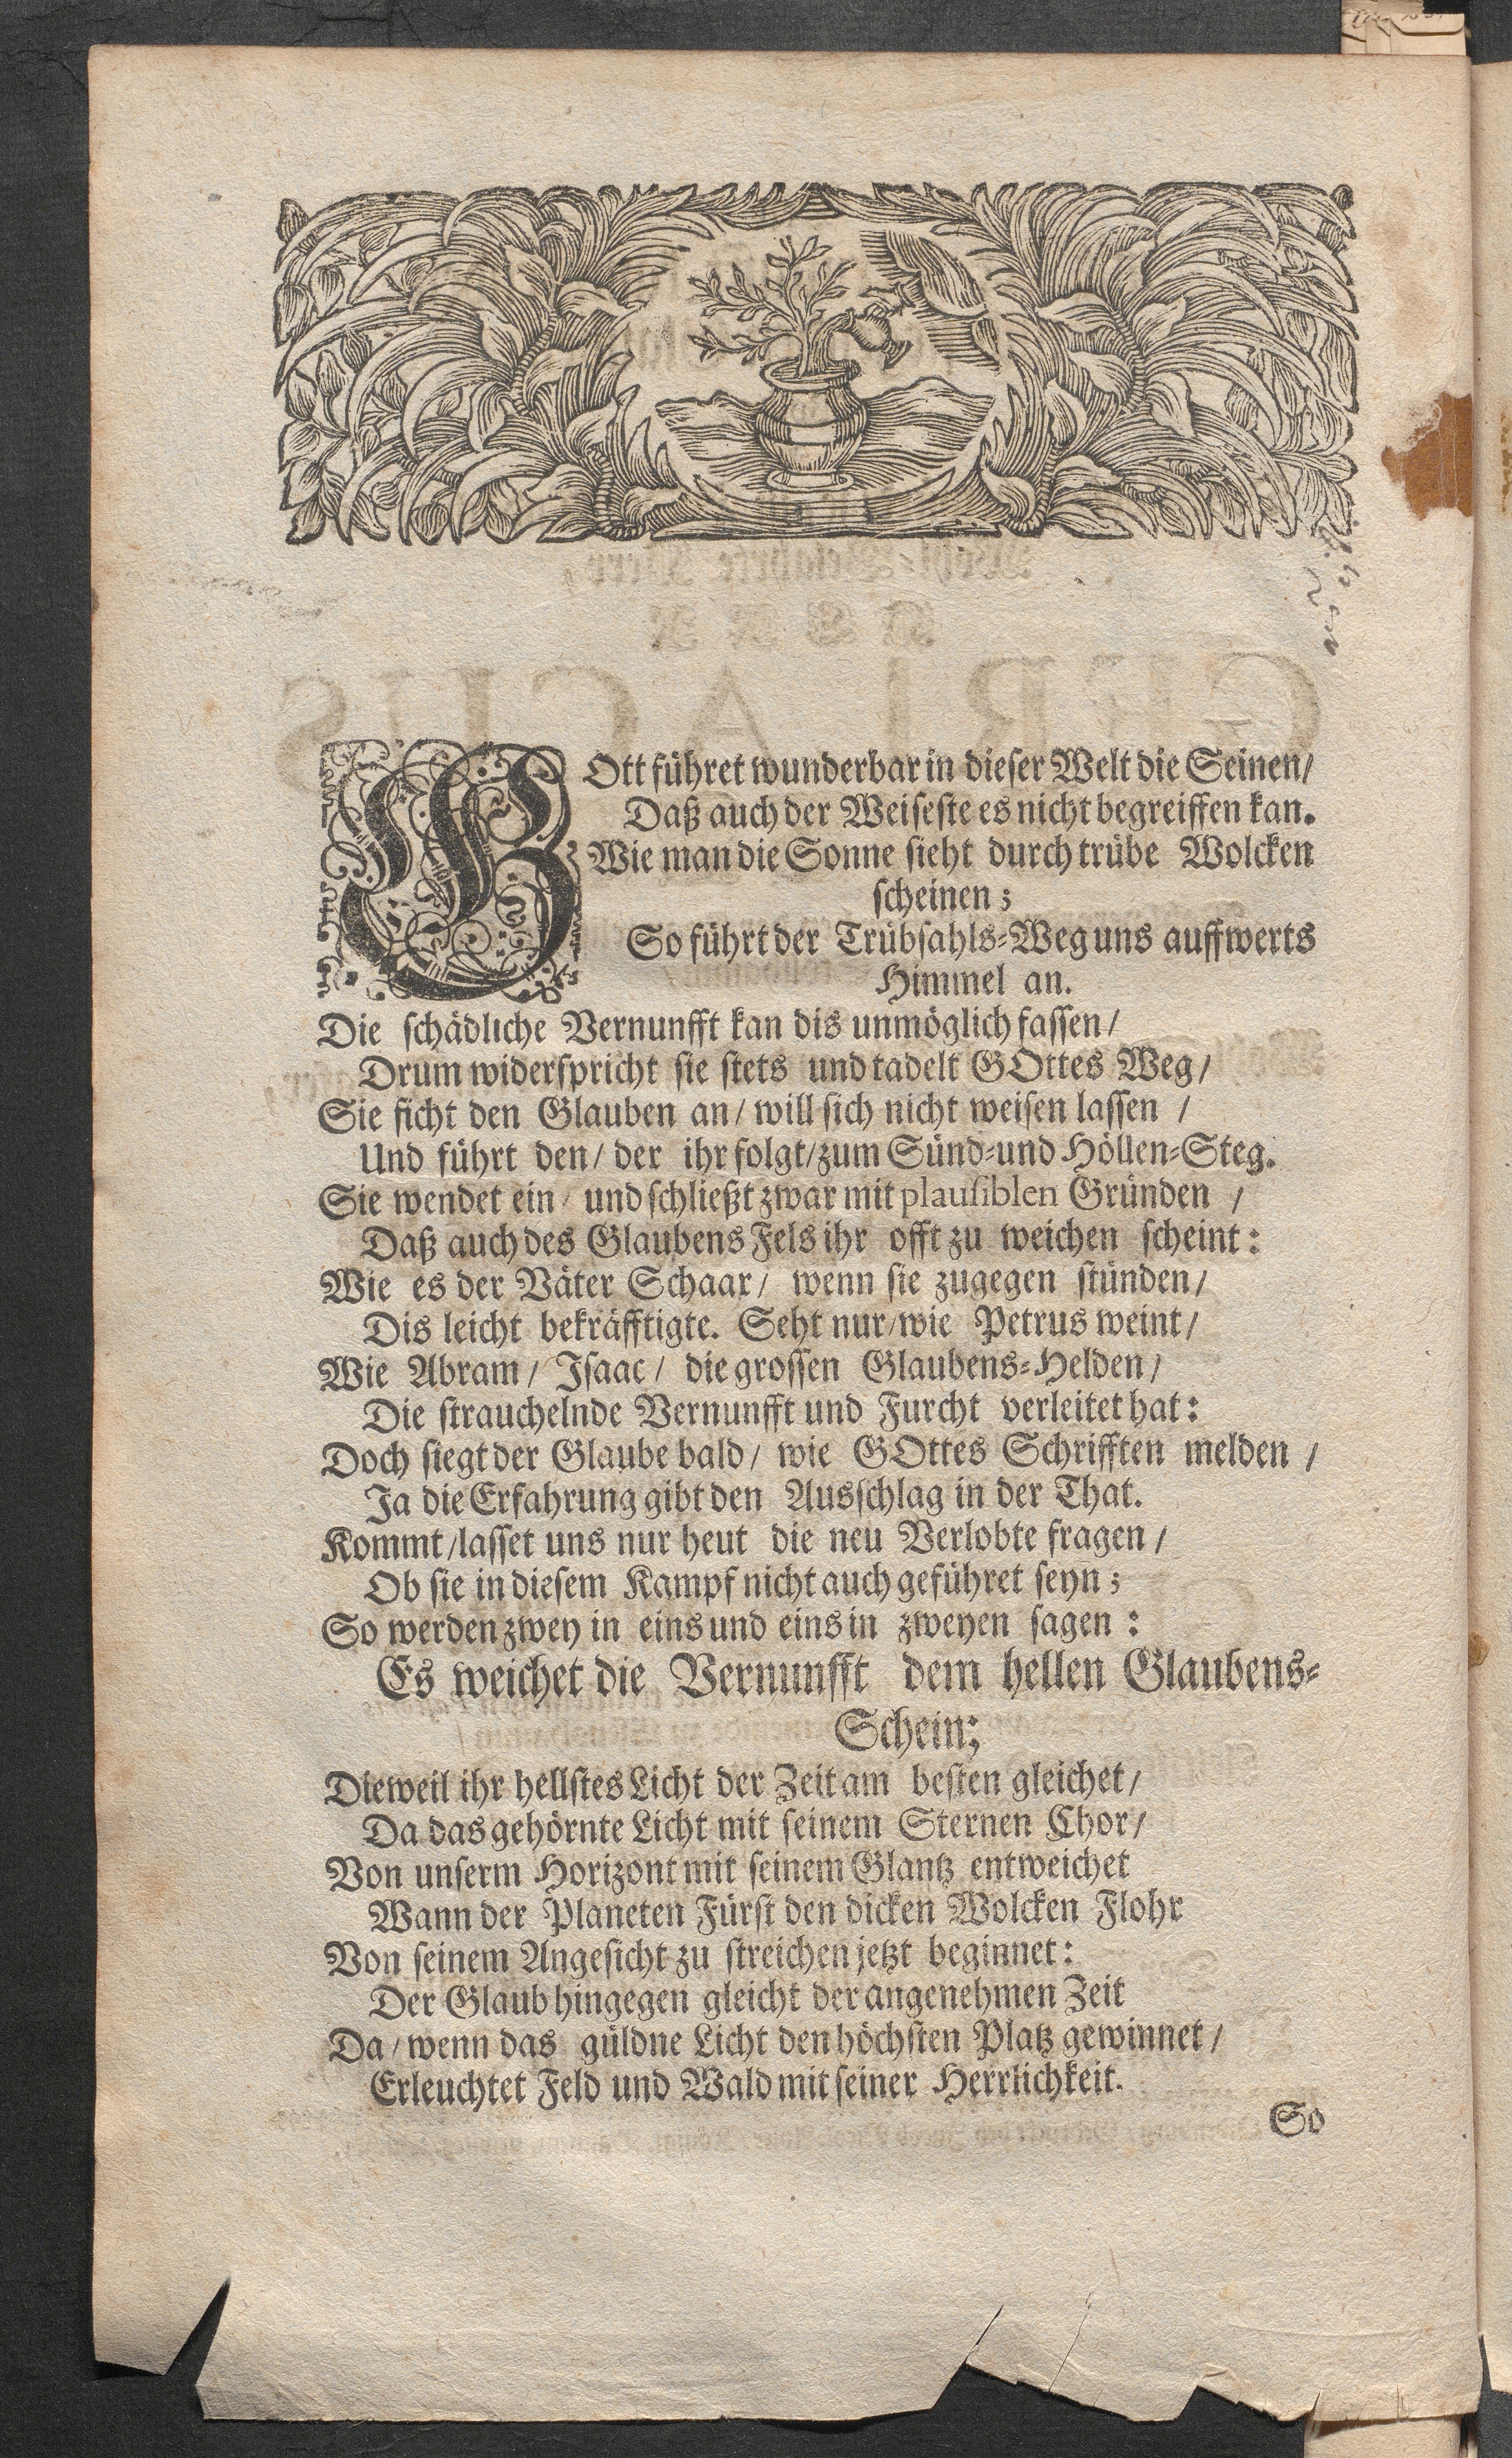 GOtt führet wunderbar in dieser Welt die Seinen/
Daß auch der Weiseste es nicht begreiffen kan.
Wie man die Sonne sieht durch trübe Wolcken
scheinen;
So führt der Trübsahls-Weg uns auffwerts
Himmel an.
Die schädliche Vernunfft kan dis unmöglich fassen/
Drum widerspricht sie stets und tadelt GOttes Weg/
Sie ficht den Glauben an/ will sich nicht weisen lassen /
Und führt den/ der ihr folgt/zum Sünd-und Höllen-Steg.
Sie wendet ein/ und schließt zwar mit plausiblen Gründen /
Daß auch des Glaubens Fels ihr offt zu weichen scheint:
Wie es der Väter Schaar/ wenn sie zugegen stünden/
Dis leicht bekräfftigte. Seht nur/wie Petrus weint/
Wie Abram/ Isaac/ die grossen Glaubens-Helden/
Die strauchelnde Vernunfft und Furcht verleitet hat:
Doch siegt der Glaube bald/ wie GOttes Schrifften melden /
Ja die Erfahrung gibt den Ausschlag in der That.
Kommt/lasset uns nur heut die neu Verlobte fragen/
Ob sie in diesem Kampf nicht auch geführet seyn;
So werden zwey in eins und eins in zweyen sagen:
Es weichet die Vernunfft dem hellen Glaubens-
Schein;
Dieweil ihr hellstes Licht der Zeit am besten gleichet/
Da das gehörnte Licht mit seinem Sternen Chor/
Von unserm Horizont mit seinem Glantz entweichet
Wann der Planeten Fürst den dicken Wolcken Flohr
Von seinem Angesicht zu streichen jetzt beginnet:
Der Glaub hingegen gleicht der angenehmen Zeit
Da/ wenn das güldne Licht den höchsten Platz gewinnet/
Erleuchtet Feld und Wald mit seiner Herrlichkeit.
So